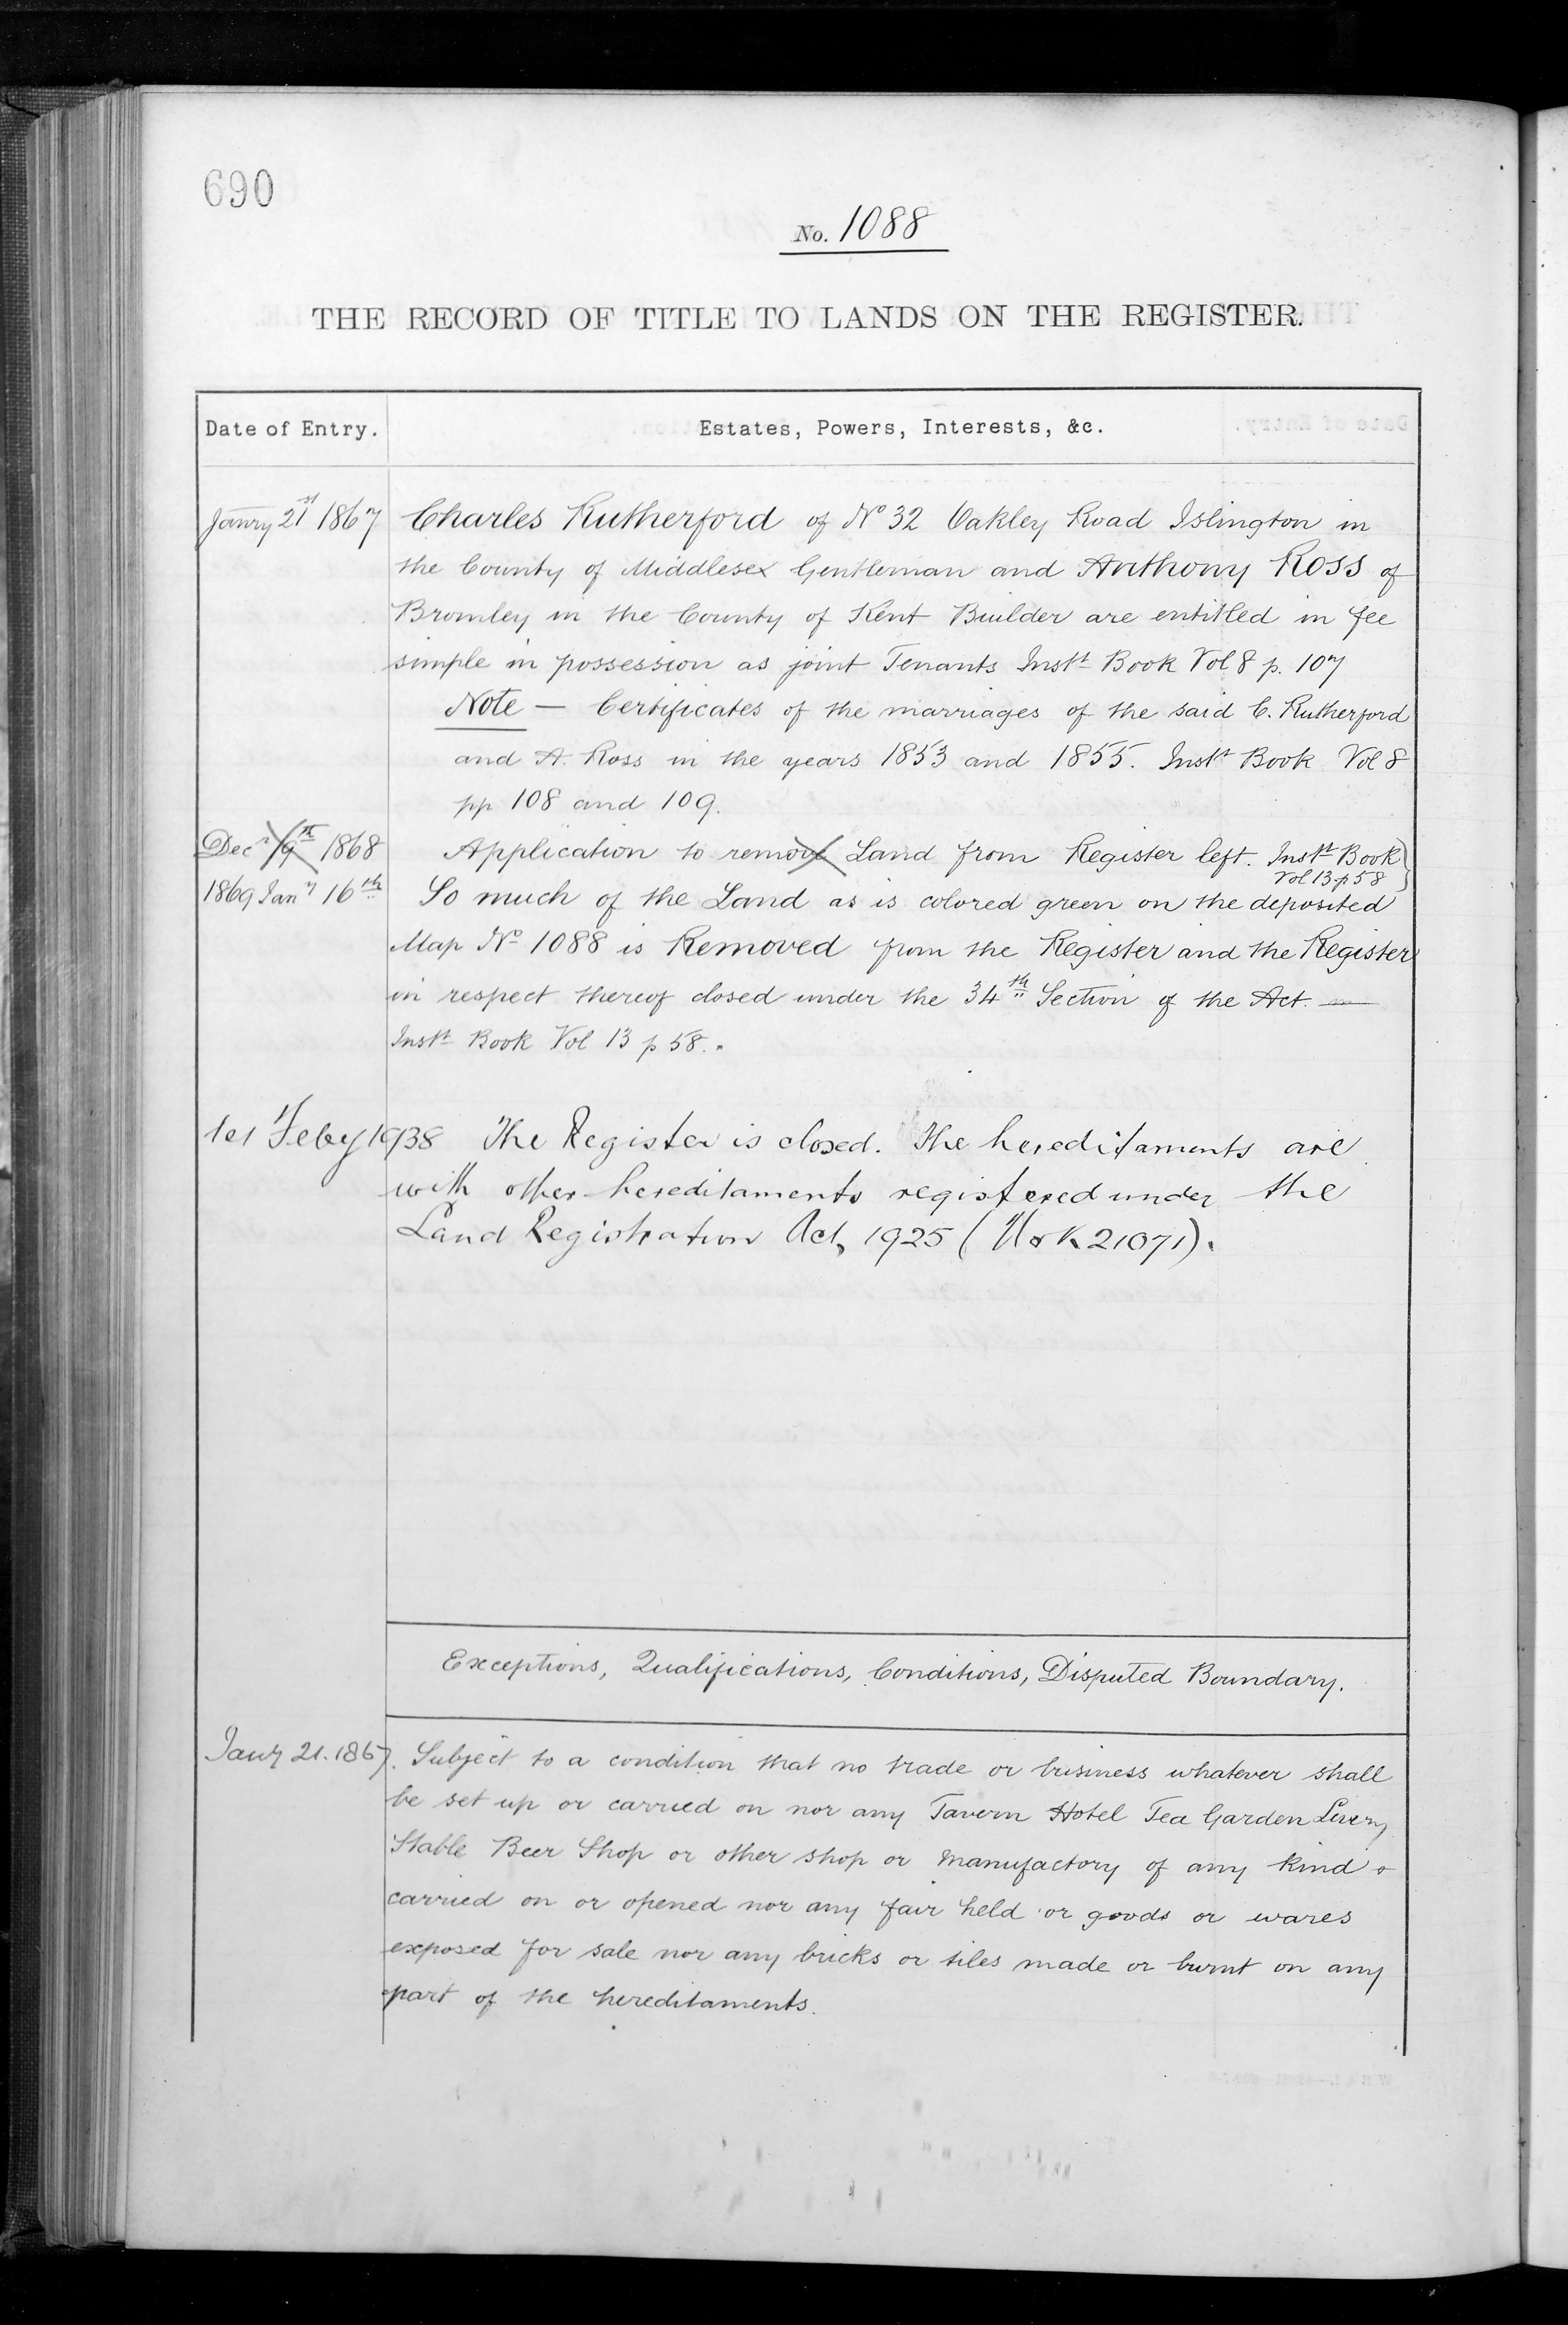 690
No. 1088
THE RECORD OF TITLE TO LANDS ON THE REGISTER.
Date of Entry. Estates, Powers, Interests, &c.
Janry 21st 1867 Charles Rutherford of No 32 Oakley Road Islington in
the County of Middlesex Gentleman and Anthony Ross of
Bromley in the County of Kent Builder are entitled in fee
simple in possession as joint Tenants Instt Book Vol 8 p. 107
Note — Certificates of the marriages of the said C. Rutherford
and A. Ross in the years 1853 and 1855. Instt Book Vol 8
pp 108 and 109.
Decr 19th 1868 Application to remove Land from Register left. Instt Book
Vol 13 p 58
1869 Jany 16th So much of the Land as is colored green on the deposited
Map No 1088 is Removed from the Register and the Register
in respect thereof closed under the 34th Section of the Act. —
Instt Book Vol 13 p 58.
1st Feby 1938 The Register is closed. The hereditaments are
with other hereditaments registered under the
Land Registration Act, 1925 ( 21071).
Exceptions, Qualifications, Conditions, Disputed Boundary.
Jany 21. 1867. Subject to a condition that no trade or business whatever shall
be set up or carried on nor any Tavern Hotel Tea Garden Livery
Stable Beer Shop or other shop or manufactory of any kind
carried on or opened nor any fair held or goods or wares
exposed for sale nor any bricks or tiles made or burnt on any
part of the hereditaments.